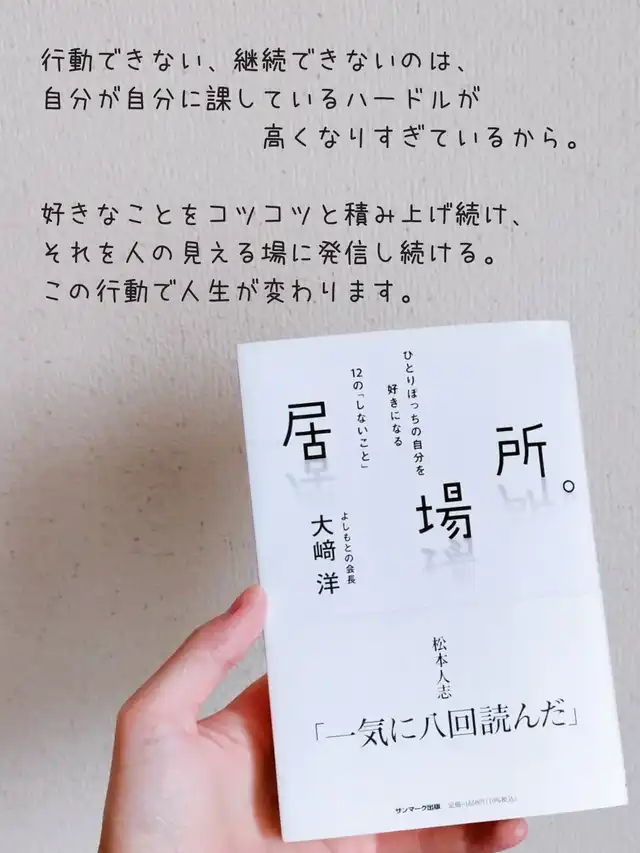 行動できない、継続できないのは、
自分が自分に課しているハードルが
高くなりすぎているから。
好きなことをコツコツと積み上げ続け、
それを人の見える場に発信し続ける。
この行動で人生が変わります。
ひとりぼっちの自分を
好きになる
12の「しないこと」
居場所。
よしもとの会長
大﨑洋
松本人志
「一気に八回読んだ」
サンマーク出版